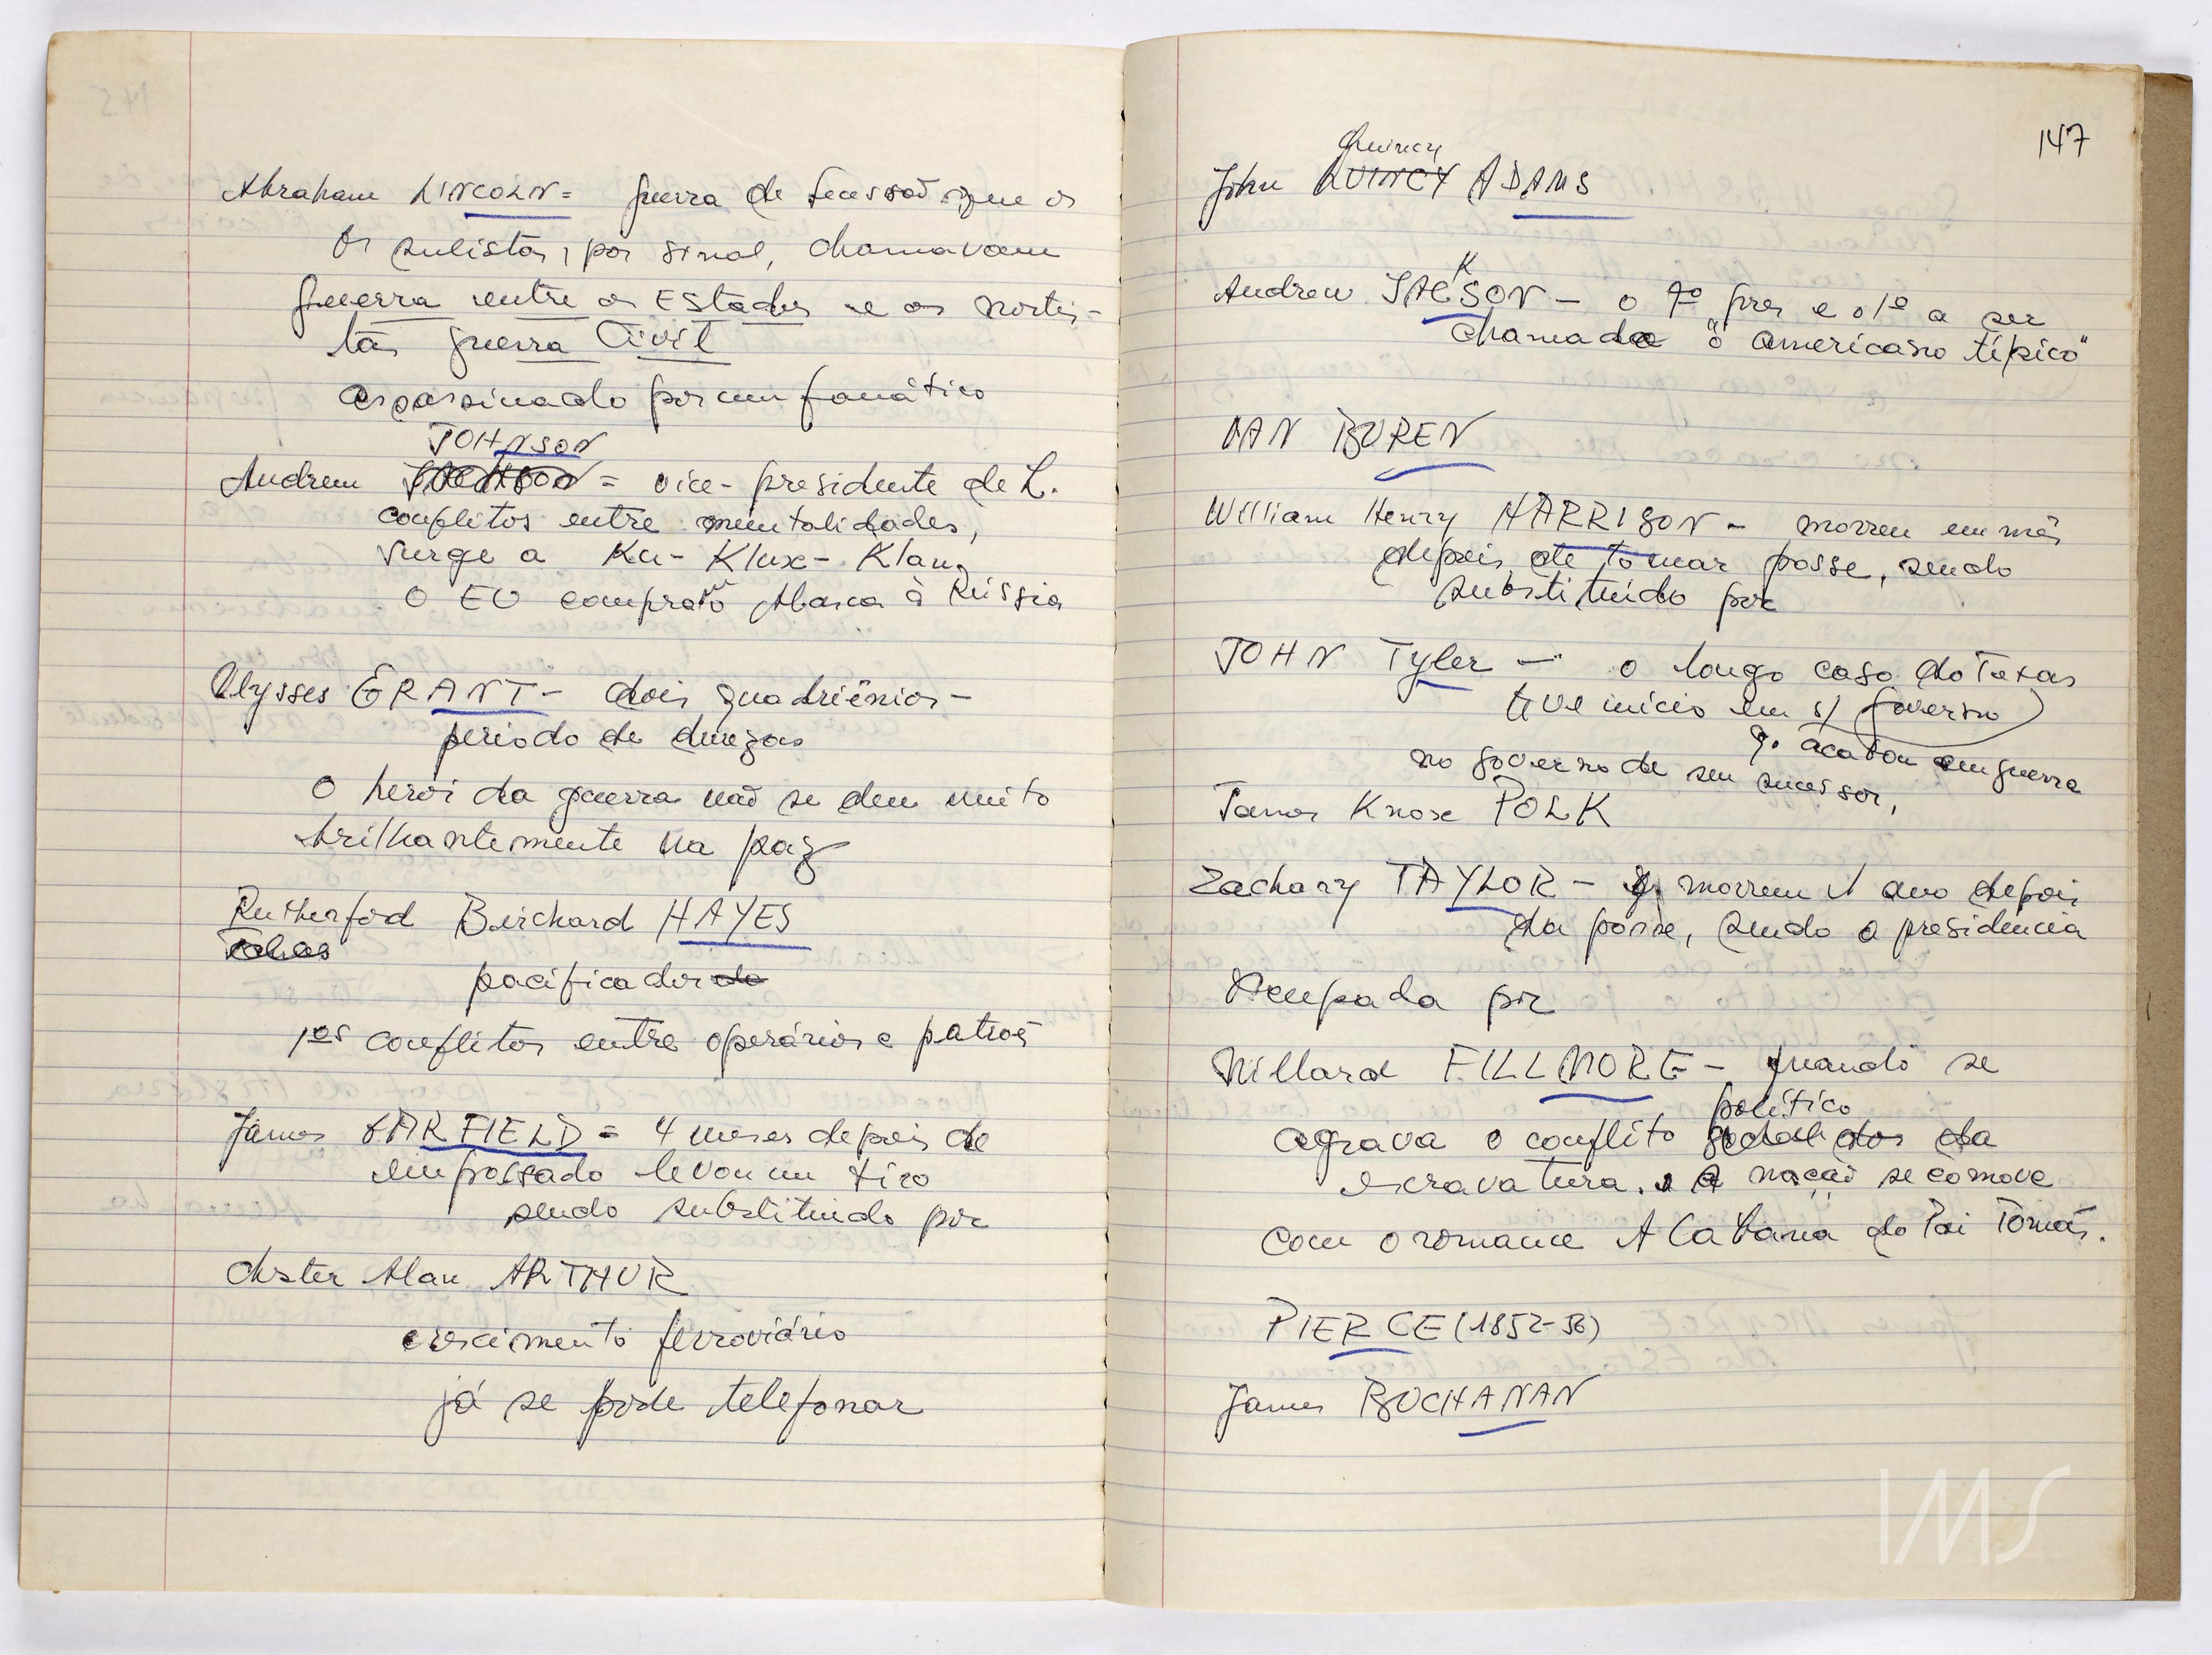 Abraham LINCOLN = guerra de secessão que os
os sulistas, por sinal, chamavam
guerra entre os Estados e os nortis-
tas guerra Civil
assassinado por um fanático
JOHNSON
Andrew = vice-presidente de L.
conflitos entre mentalidades,
surge a Ku-Klux-Klan.
O EU compra Alasca à Rússia
Ulysses GRANT - dois quadriênios -
período de durezas
O herói da guerra não se deu muito
brilhantemente na paz
Rutherford Birchard HAYES
pacificador do
1os conflitos entre operários e patrões
James GARFIELD = 4 meses depois de
empossado levou um tiro
sendo substituído por
Chester Alan ARTHUR
crescimento ferroviário
já se pode telefonar
147
Quincy
John QUINCY ADAMS
K
Andrew JACSON - o 7º pres e o 1º a ser
chamado "o americano típico"
VAN BUREN
William Henry HARRISON - morreu um mês
depois de tomar posse, sendo
substituído por
JOHN Tyler - o longo caso do Texas
teve início em s/ governo
q. acabou em guerra
no governo de seu sucessor,
James Knox POLK
Zachary TAYLOR - q. morreu 1 ano depois
da posse, sendo a presidência
ocupada por
Millard FILLMORE - quando se
político
agrava o conflito da
escravatura. A nação se comove
com o romance A Cabana do Pai Tomás.
PIERCE (1852-56)
James BUCHANAN
IMS